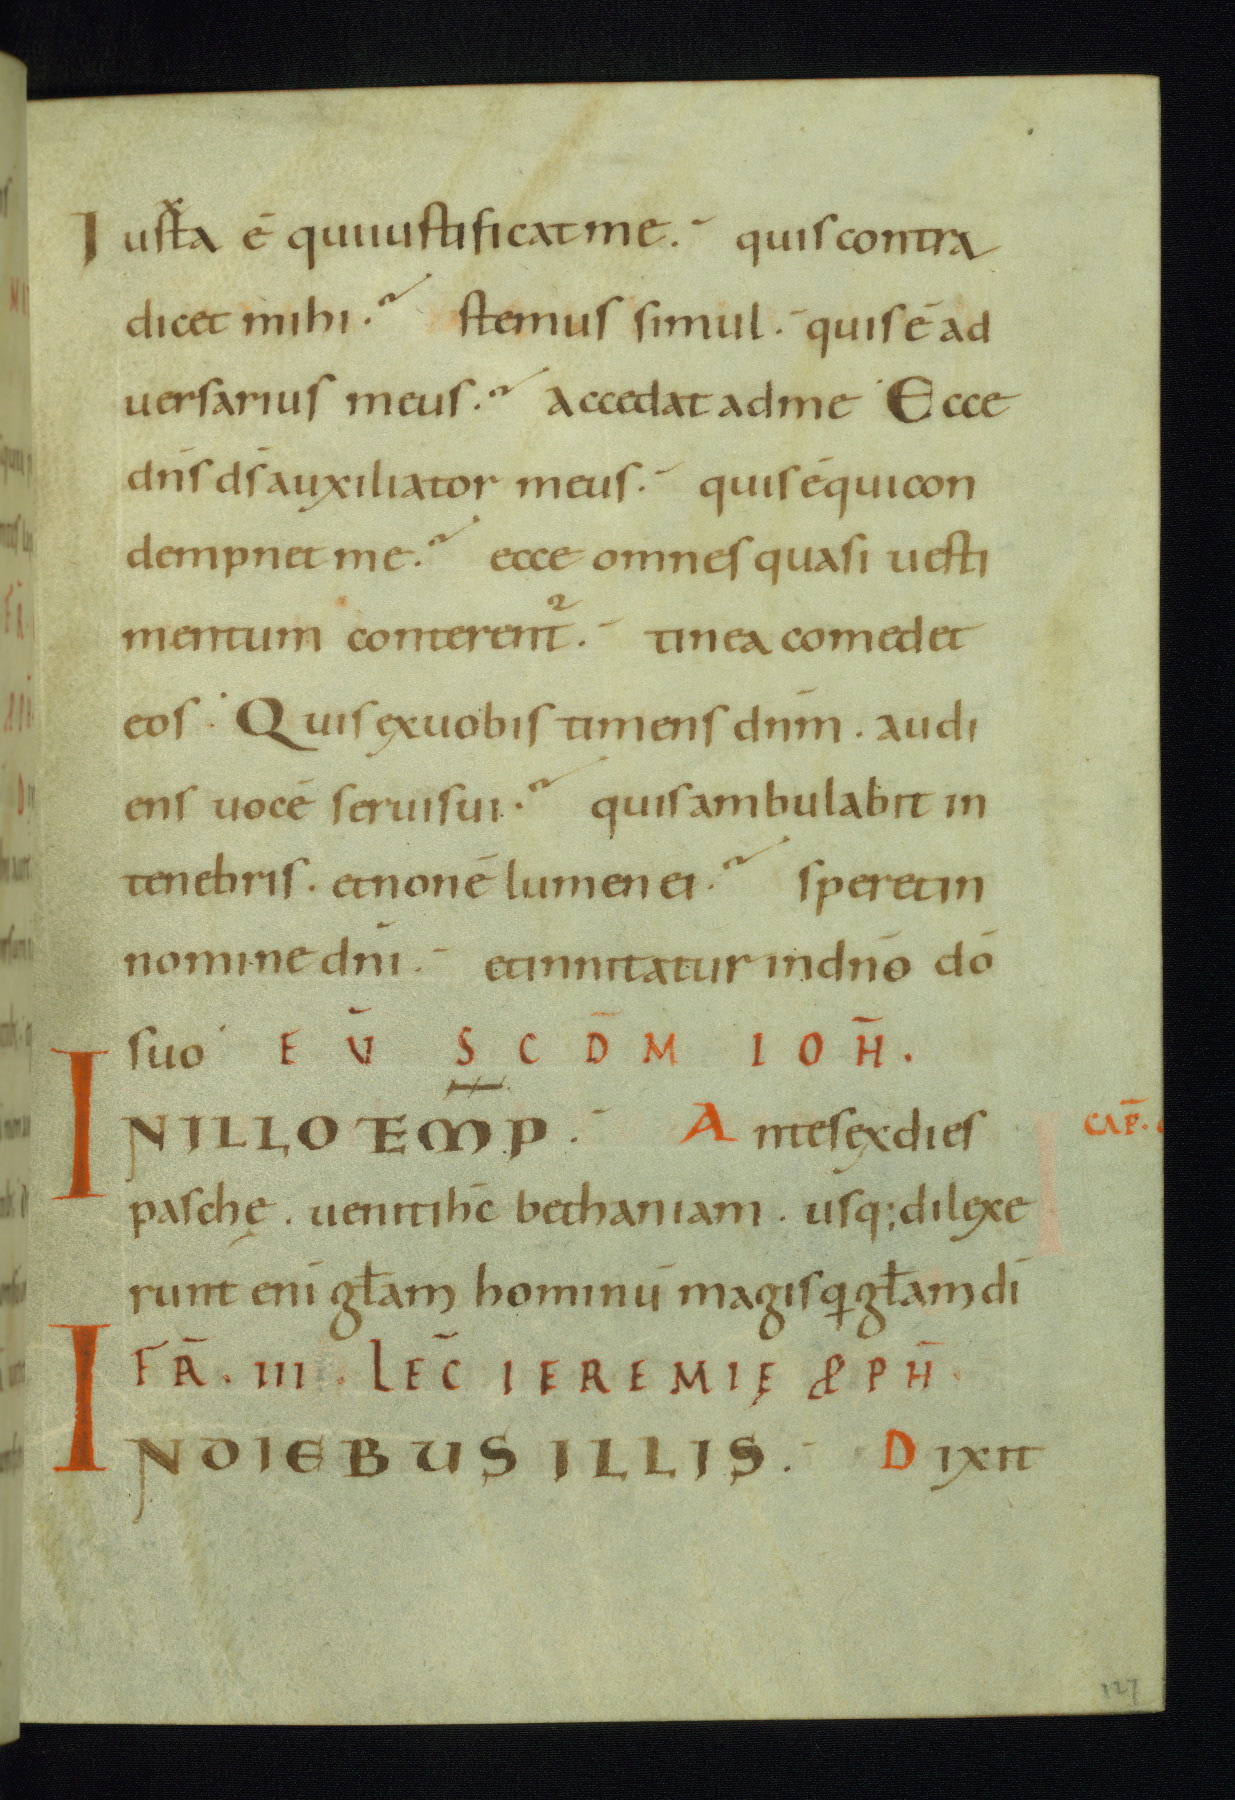 Iusta ē quiiustificat me. quis contra
dicet mihi. stemus simul. quis ē ad
uersarius meus. accedat ad me Ecce
dn̄s ds̄ auxiliator meus. quis ē qui con
dempnet me. ecce omnes quasi uesti
mentum conterent᷑. tinea comedet
eos. Quis ex uobis timens dn̄m. audi
ens uocē serui sui. quis ambulabit in
tenebris. et non ē lumen ei. speret in
nomine dn̄i. et innitatur in dn̄o dō
suo EV̄ SCD̄M IOH̄.
IN ILLO TEM̄P. Ante sex dies
paschę. uenit ih̄c bethaniam. usq; dilexe
runt eni̅ gl̄am hominū magis q gl̄am dī
FR̄. III. LEC̄ IEREMIĘ &PH̄.
IN DIEBUS ILLIS. Dixit
CAP̄.
127